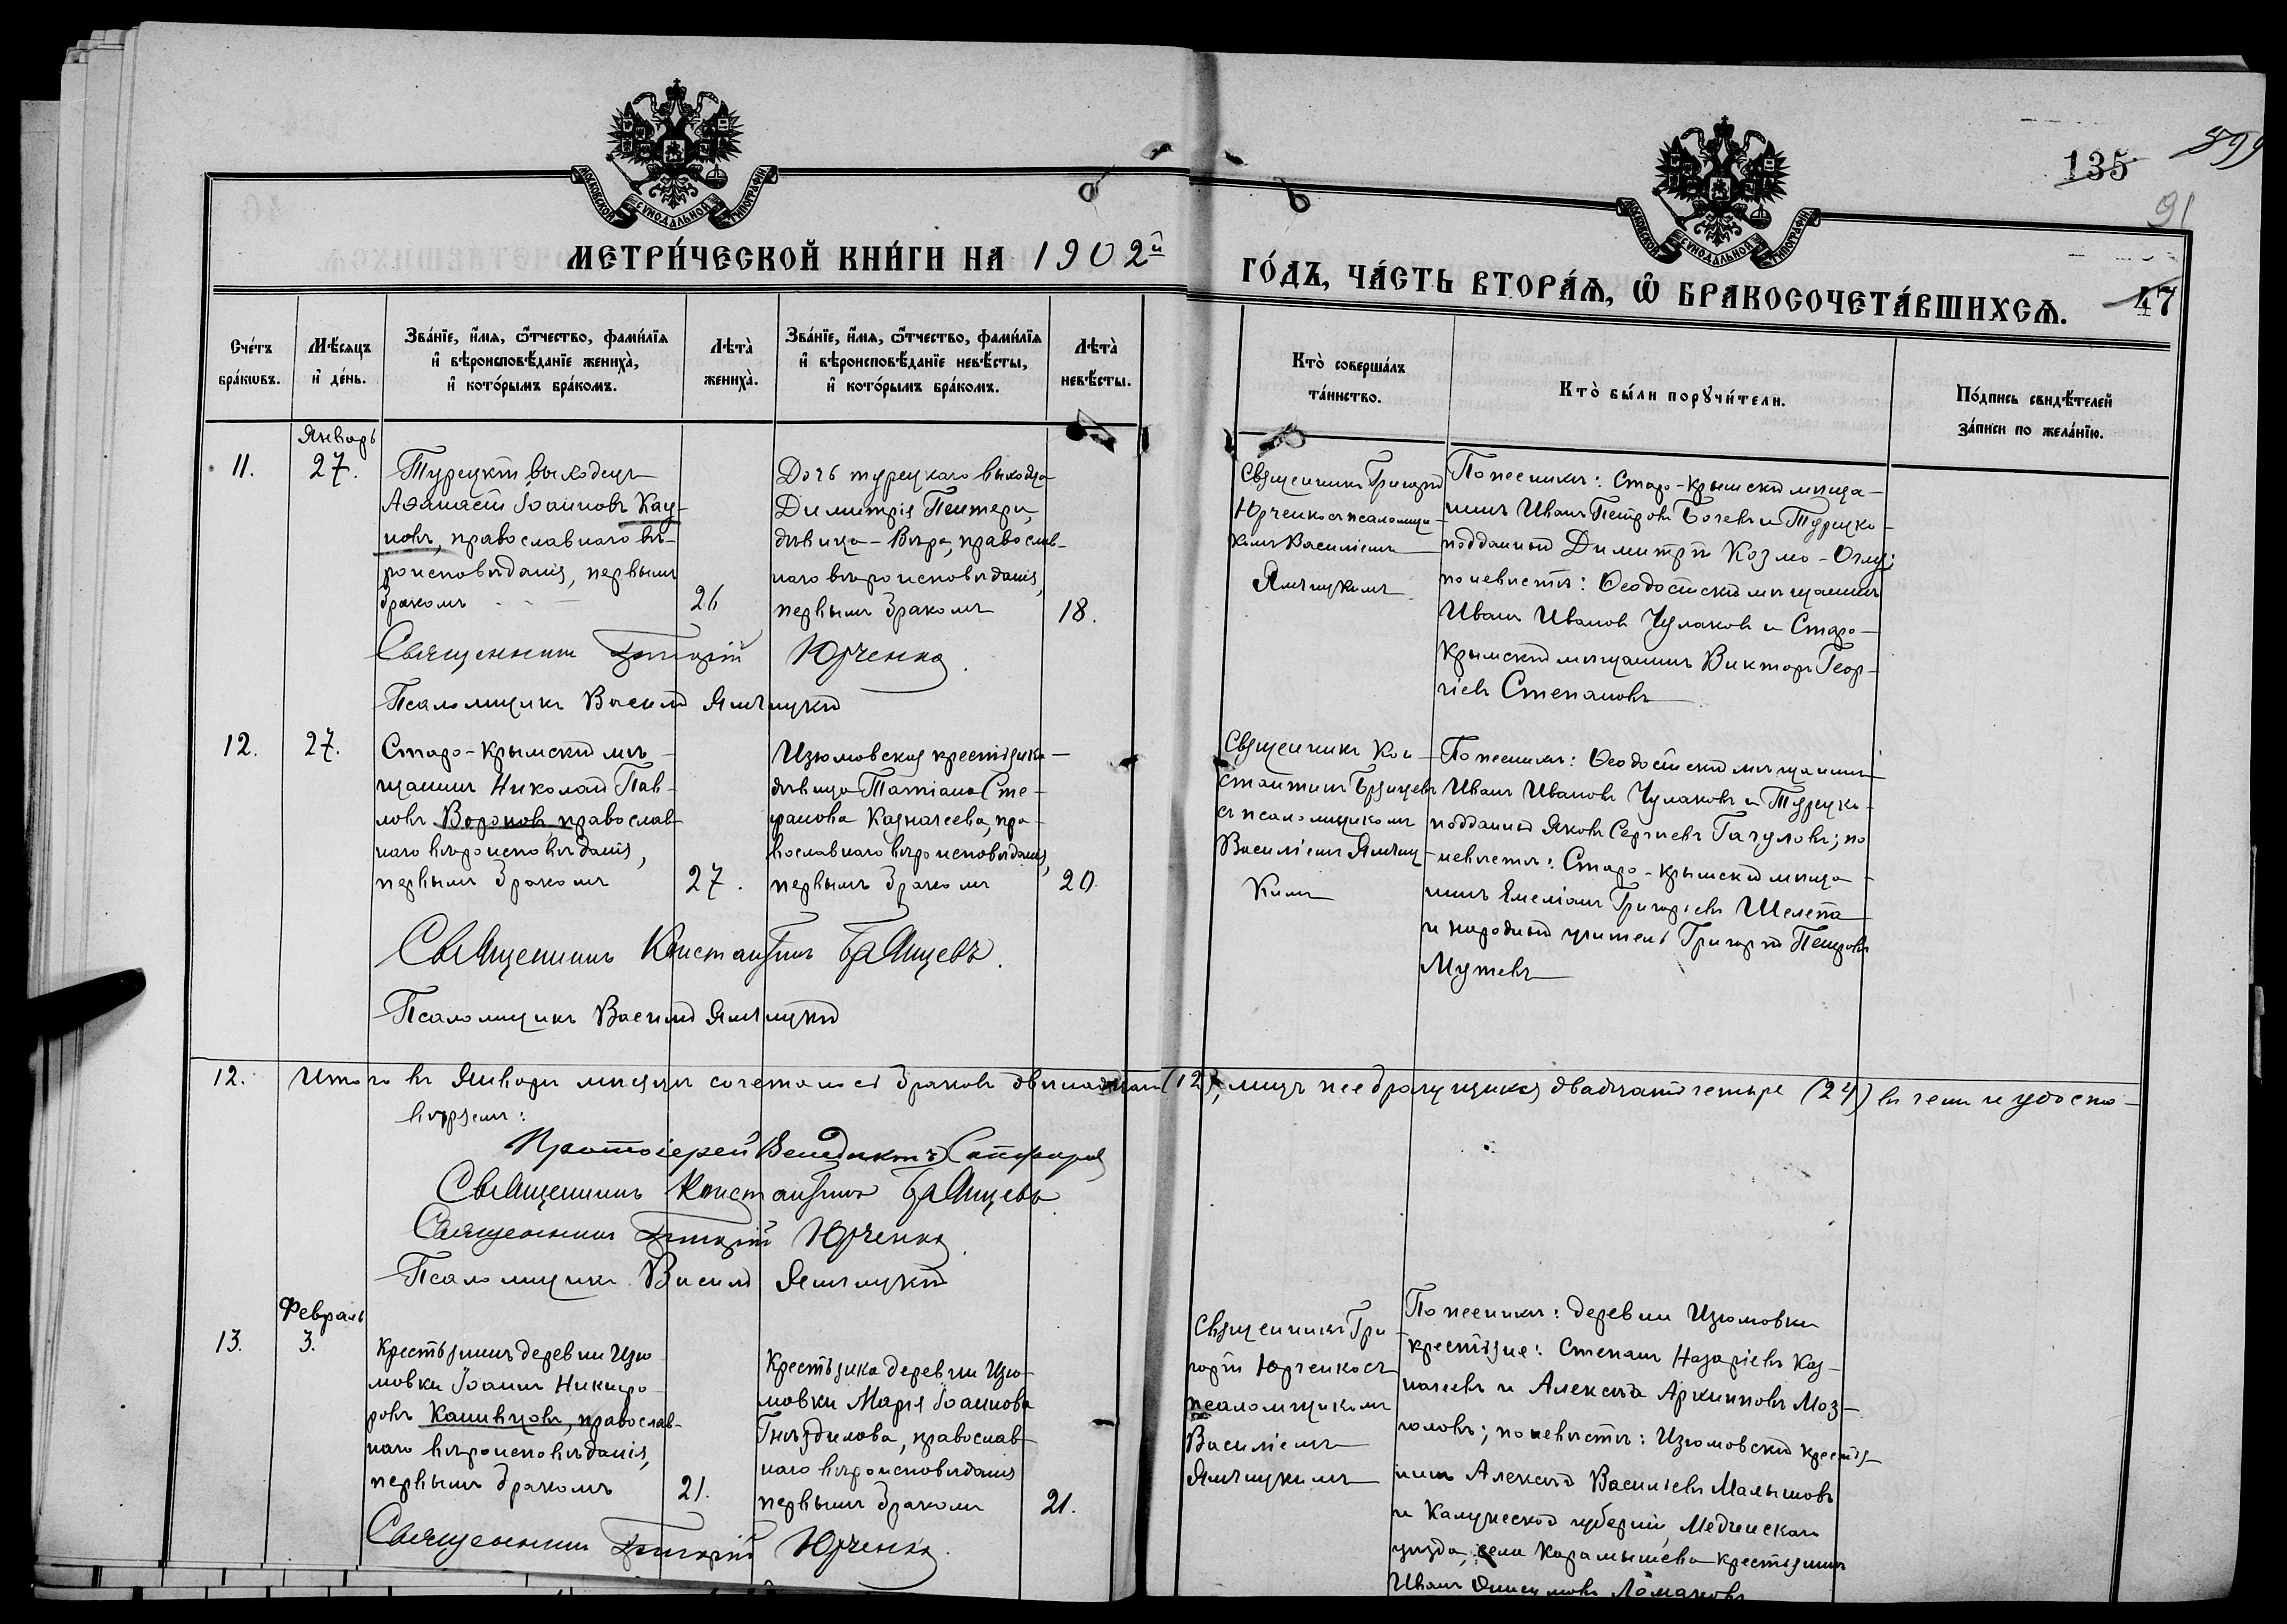 135
91
МОСКОВСКОЙ СУНОДАЛЬНОЙ ТИПОГРАФІИ
МОСКОВСКОЙ СУНОДАЛЬНОЙ ТИПОГРАФІИ
МЕТРИ́ЧЕСКОЙ КНИ́ГИ НА 1902й
ГО́ДЪ, ЧА́СТЬ ВТОРА́Ѧ, Ѽ БРАКОСОЧЕТА́ВШИХСѦ.
47
Сче́тъ
бра́кωвъ.
Мѣ́сяцъ
и҆ де́нь.
Зва́нїе, и҆́мя, ѻ҆́тчество, фами́лїя
и҆ вѣроисповѣ́данїе жениха̀,
и҆ кото́рымъ бра́комъ.
Лѣта̀
жениха̀.
Зва́нїе, и҆́мя, ѻ҆́тчество, фами́лїя
и҆ вѣроисповѣ́данїе невѣ́сты,
и҆ кото́рымъ бра́комъ.
Лѣта̀
невѣ́сты.
Кто̀ соверша́лъ
та́инство.
Кто̀ бы́ли порꙋчи́тели.
По́дпись свидѣ́телей
за́писи по жела́нїю.
11.
Январь
27.
Турецкій выходецъ
Аѳанасій Іоанновъ Кау-
новъ, православнаго вѣ-
роисповѣданія, первымъ
бракомъ
26
Дочь турецкаго выходца
Димитрія Пентери,
дѣвица - Вѣра, православ-
наго вѣроисповѣданія,
первымъ бракомъ
18.
Священникъ Григорій
Юрченко съ псаломщи-
комъ Василіемъ
Ямчицкимъ
По женихѣ: Старо-Крымскій мѣща-
нинъ Иванъ Петровъ Бочевъ и Турецко-
подданный Димитрій Козмо-Оглу;
по невѣстѣ: Ѳеодосійскій мѣщанинъ
Иванъ Ивановъ Чулаковъ и Старо-
Крымскій мѣщанинъ Викторъ Геор-
гіевъ Степановъ
Священникъ Григорій Юрченко.
Псаломщикъ Василій Ямчицкій
12.
27.
Старо-Крымскій мѣ-
щанинъ Николай Пав-
ловъ Вороновъ, православ-
наго вѣроисповѣданія,
первымъ бракомъ
27.
Изюмовская крестьянка
дѣвица Татіана Сте-
фанова Казначеева, пра-
вославнаго вѣроисповѣданія,
первымъ бракомъ
20.
Священникъ Кон-
стантинъ Брянцевъ
съ псаломщикомъ
Василіемъ Ямчиц-
кимъ
По женихѣ: Ѳеодосійскій мѣщанинъ
Иванъ Ивановъ Чулаковъ и Турецко-
подданный Яковъ Сергѣевъ Гачуловъ; по
невѣстѣ: Старо-Крымскій мѣща-
нинъ Емеліанъ Григорьевъ Шелепа
и народный учитель Григорій Петровъ
Мутевъ
Священникъ Константинъ Брянцевъ.
Псаломщикъ Василій Ямчицкій
12. Итого въ Январѣ мѣсяцѣ сочеталось браковъ двѣнадцать (12), лицъ двадцать четыре (24) въ чемъ и удосто-
вѣряемъ:
Протоіерей Венедиктъ
Священникъ Константинъ Брянцевъ
Священникъ Григорій Юрченко.
Псаломщикъ Василій Ямчицкій
13.
Февраль
3.
Крестьянинъ деревни Изю-
мовки Іоаннъ Никифо-
ровъ Кашивцовъ, православ-
наго вѣроисповѣданія,
первымъ бракомъ
21.
Крестьянка деревни Изю-
мовки Марія Іоаннова
Гнѣздилова, православ-
наго вѣроисповѣданія
первымъ бракомъ
21.
Священникъ Гри-
горій Юрченко съ
псаломщикомъ
Василіемъ
Ямчицкимъ
По женихѣ: деревни Изюмовки
крестьяне: Степанъ Назарьевъ Каз-
начеевъ и Алексѣй Архиповъ Моз-
головъ; по невѣстѣ: Изюмовскій крестья-
нинъ Алексѣй Васильевъ Малышовъ
и Калужской губерніи, Медынскаго
уѣзда, села Карамышева крестьянинъ
Иванъ Ломаковъ
Священникъ Григорій Юрченко.